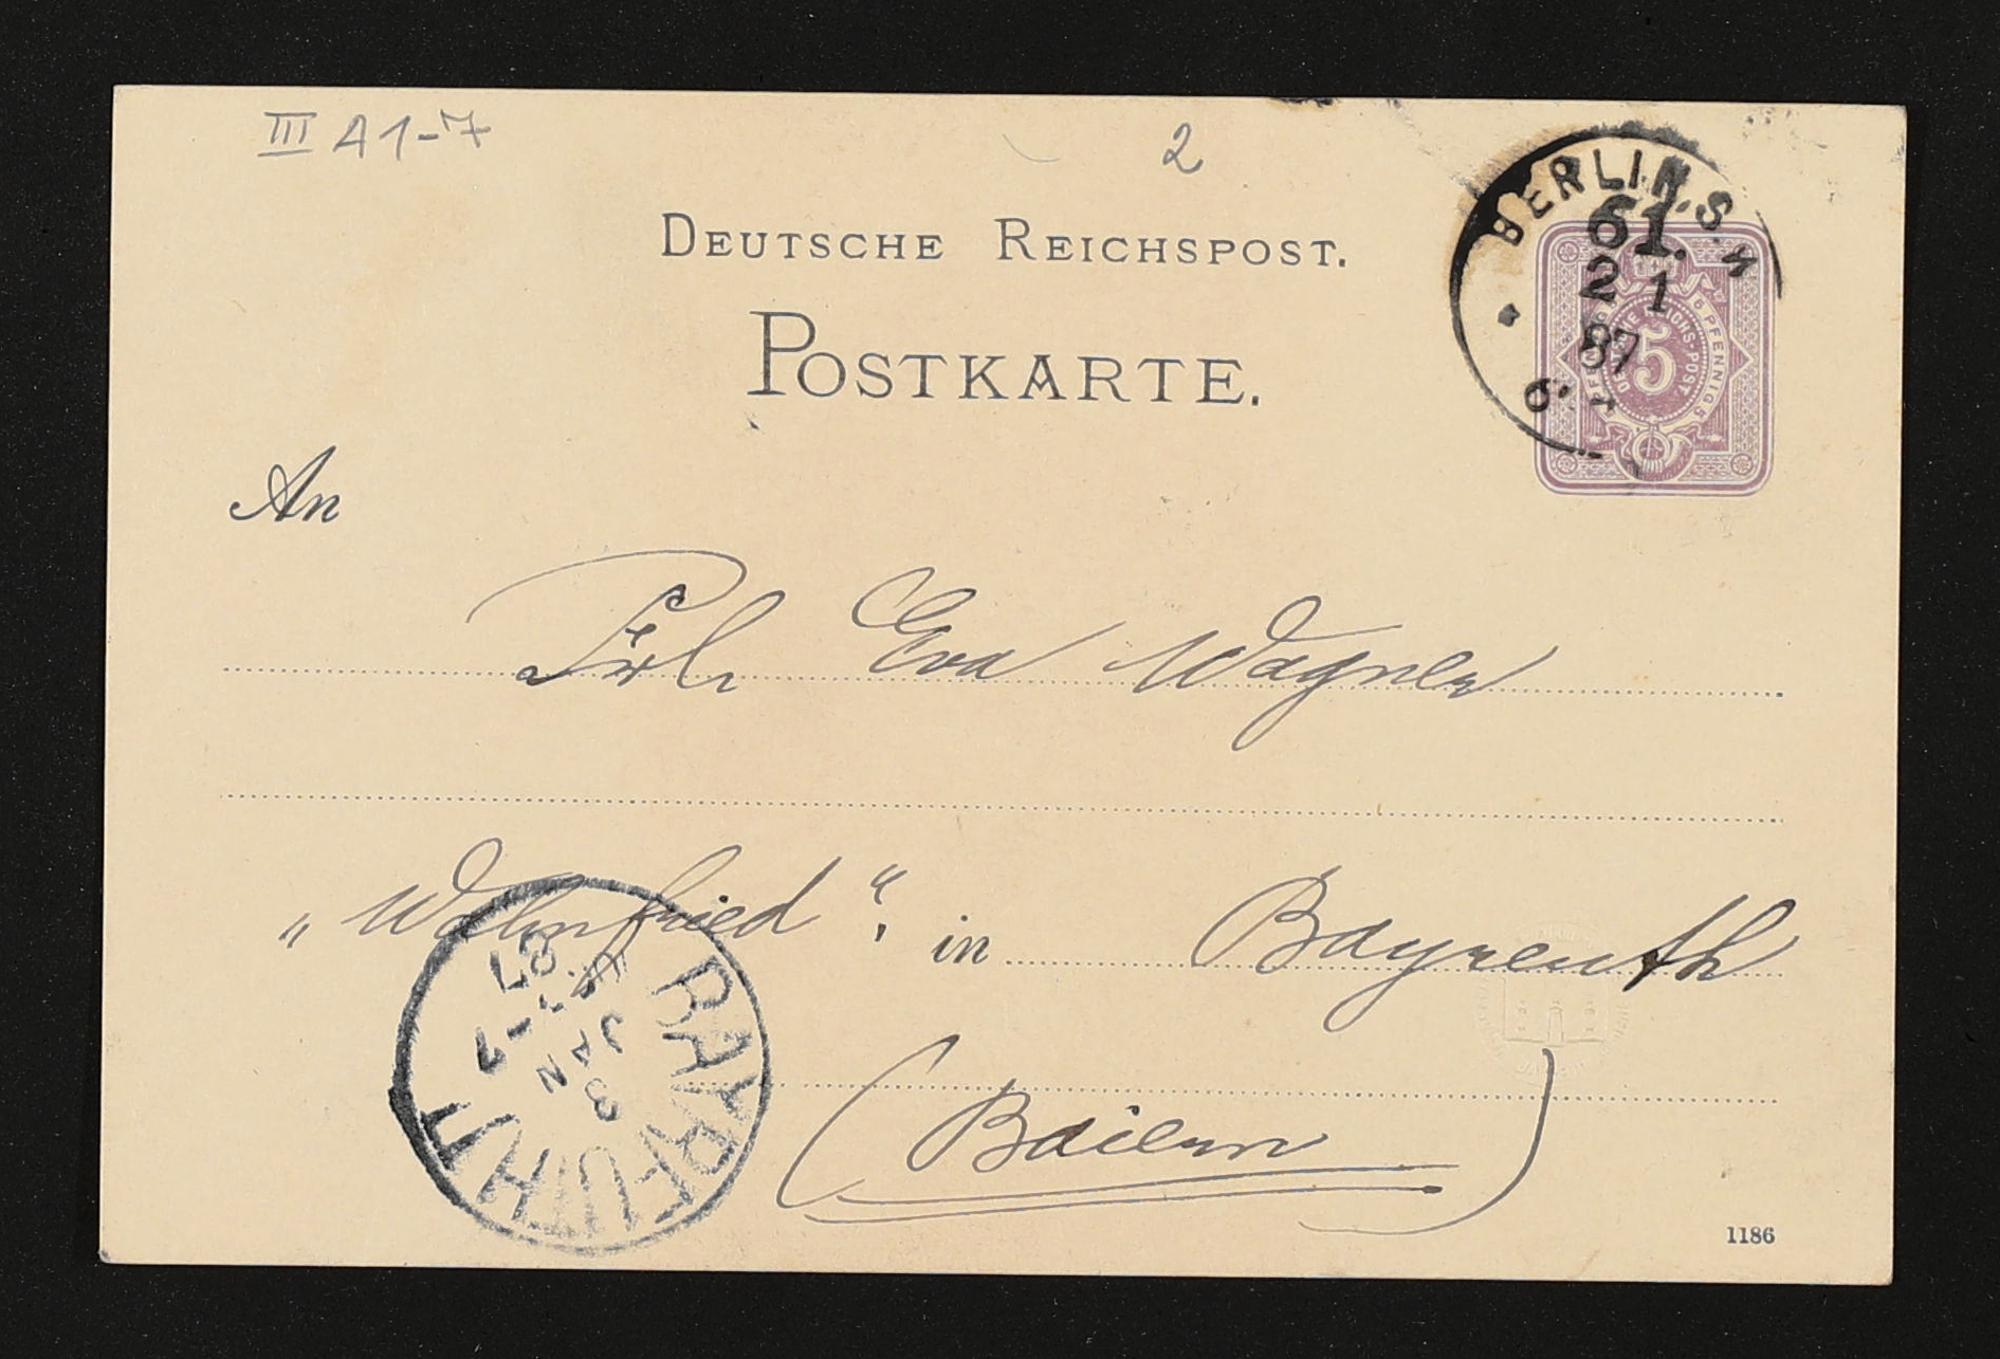 III A1-7
2
DEUTSCHE REICHSPOST.
POSTKARTE.
BERLIN. S.
61.
2 1
87
5
An
Frl. Eva Wagner
„Wahnfried“. in Bayreuth
BAYREUTH
3 JAN
87
(Baiern)
1186